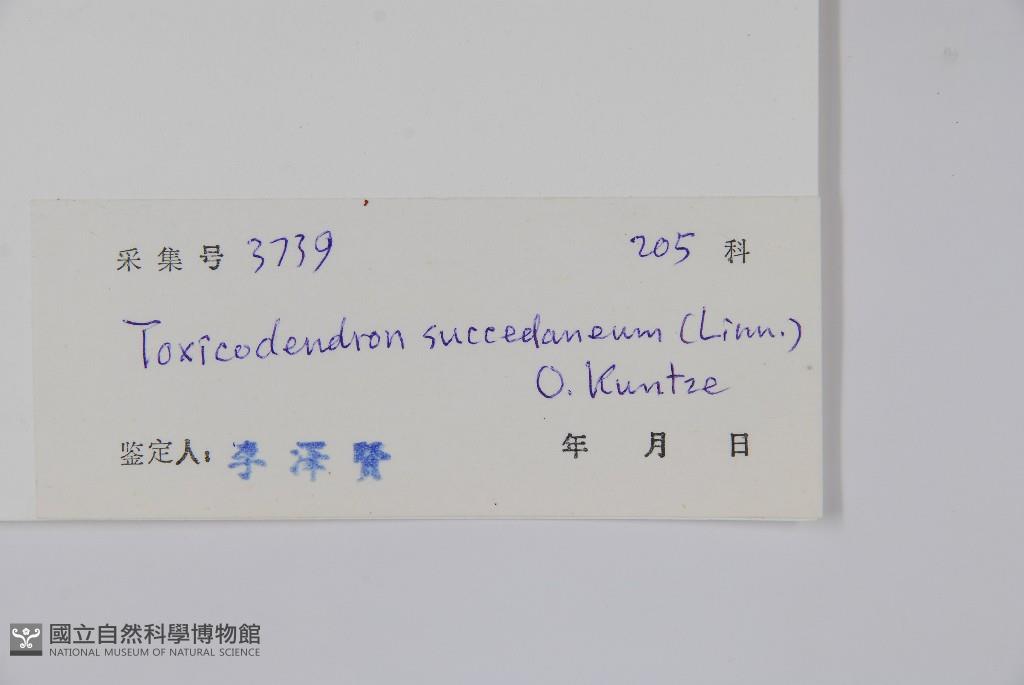 采集号 3739 205 科
Toxicodendron succedaneum (Linn.)
O. Kuntze
鉴定人: 李泽賢 年 月 日
國立自然科學博物館
NATIONAL MUSEUM OF NATURAL SCIENCE